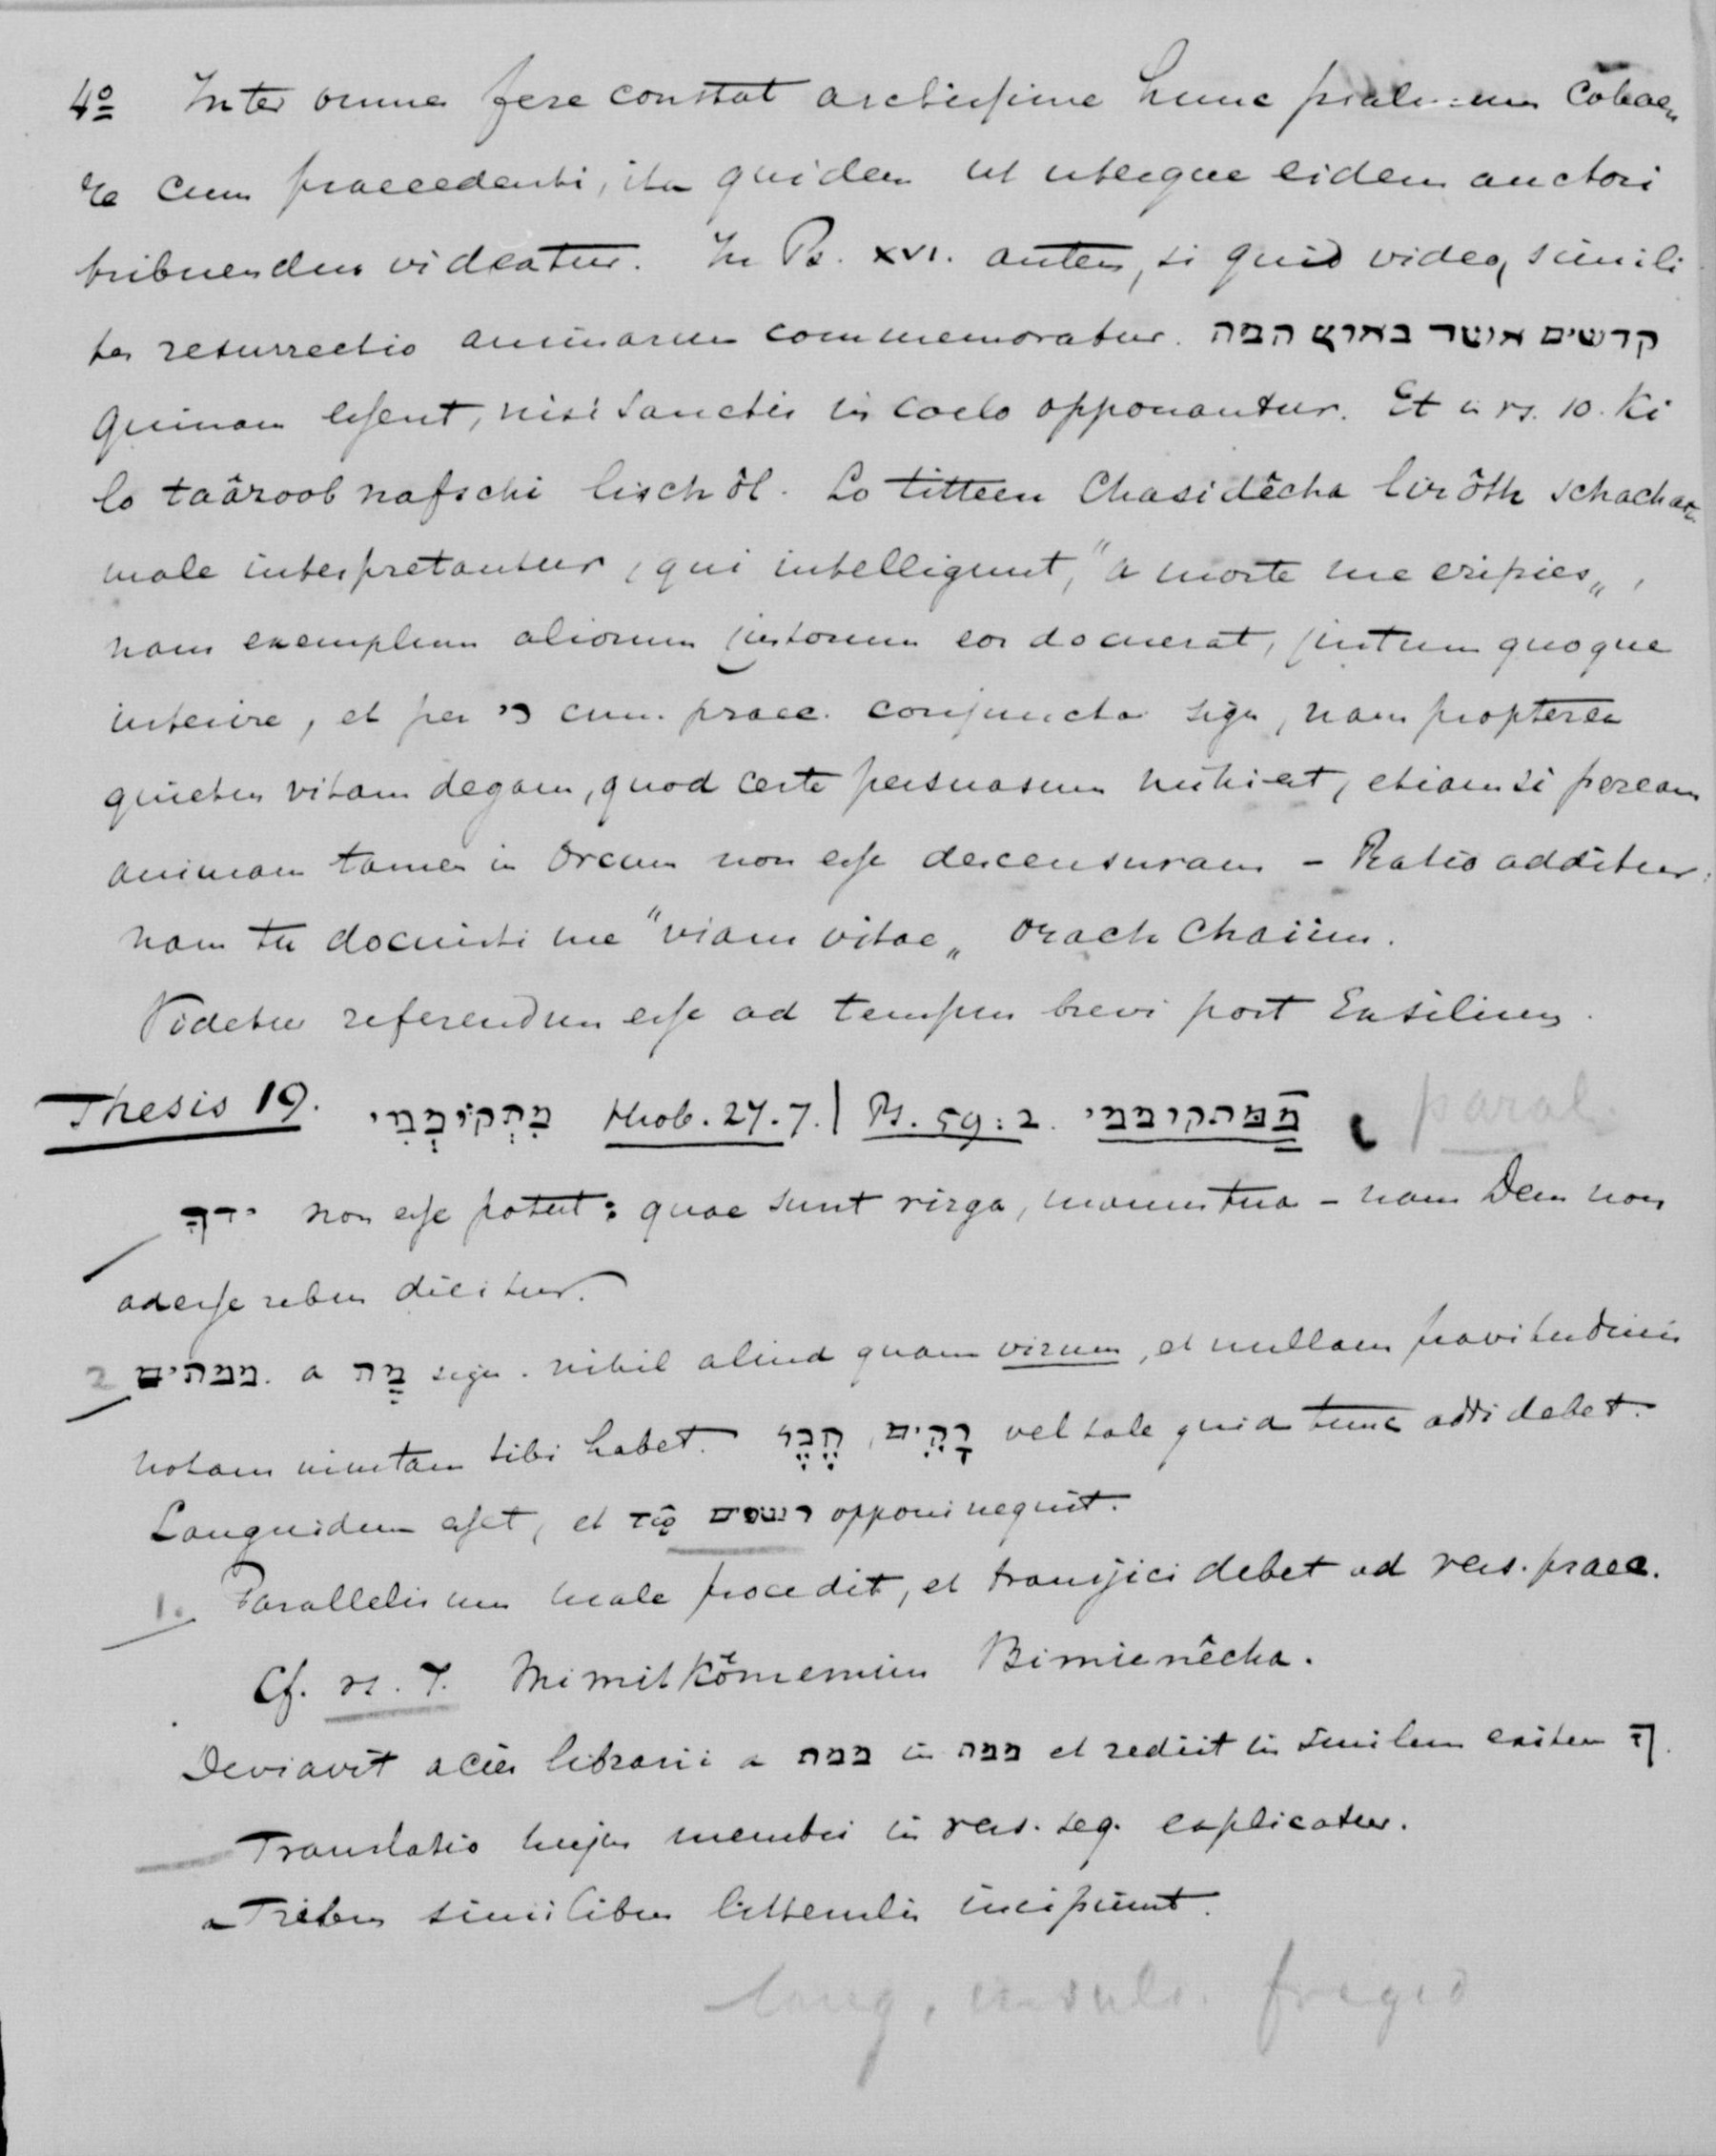 4º Inter omnes fere constat arctissime hunc psalmum cohae
re cum praecedenti, ita quidem ut uterque eidem auctori
tribuendus videatur. In Ps. XVI. autem, si quid video, simili
ter resurrectio animarum commemoratur. קדשים אשר בארץ המה
quinam essent, nisi sanctis in coelo opponantur. Et in vs. 10. Ki
lo taâzoob nafschi lischôl. Lo titteen Chasidêcha lirôth schachat
male interpretantur, qui intelligunt, "a morte me eripies„,
nam exemplum aliorum justorum eos docuerat, justum quoque
interire, et per כי cum praec. conjuncta sign, nam propterea
quietem vitam degam, quod certe persuasum mihi est, etiamsi peream
animam tamen in Orcum non esse descensuram – Ratio additur:
nam tu docuisti me "viam vitae„ Orach Chaiim.
Videtur referendum esse ad tempus brevi post Exsilium.
Thesis 19. מִתְקוֹמְמִי Hiob. 27.7. | Ps. 59:2. מִמִּתקוממי paral.
ידךָ non esse potest: quae sunt virga, manus tua – nam Deus non
adesse rebus dicitur.
2 ממתים. a מַת sign. nihil aliud quam virum, et nullam pravitudinis
notam junctam sibi habet. vel tale quid tunc addi debet.
Languidum esset, et רשעים opponi nequit.
1. Parallelismus male procedit, et transjici debet ad vers. praec.
Cf. vs. 7. Mimitkômemim Bimienêcha.
Deviavit acies librarii a in et rediit in similem exitum ךָ.
Translatio hujus membri in vers. seq. explicatur.
a Tribus similibus litterulis incipiunt.